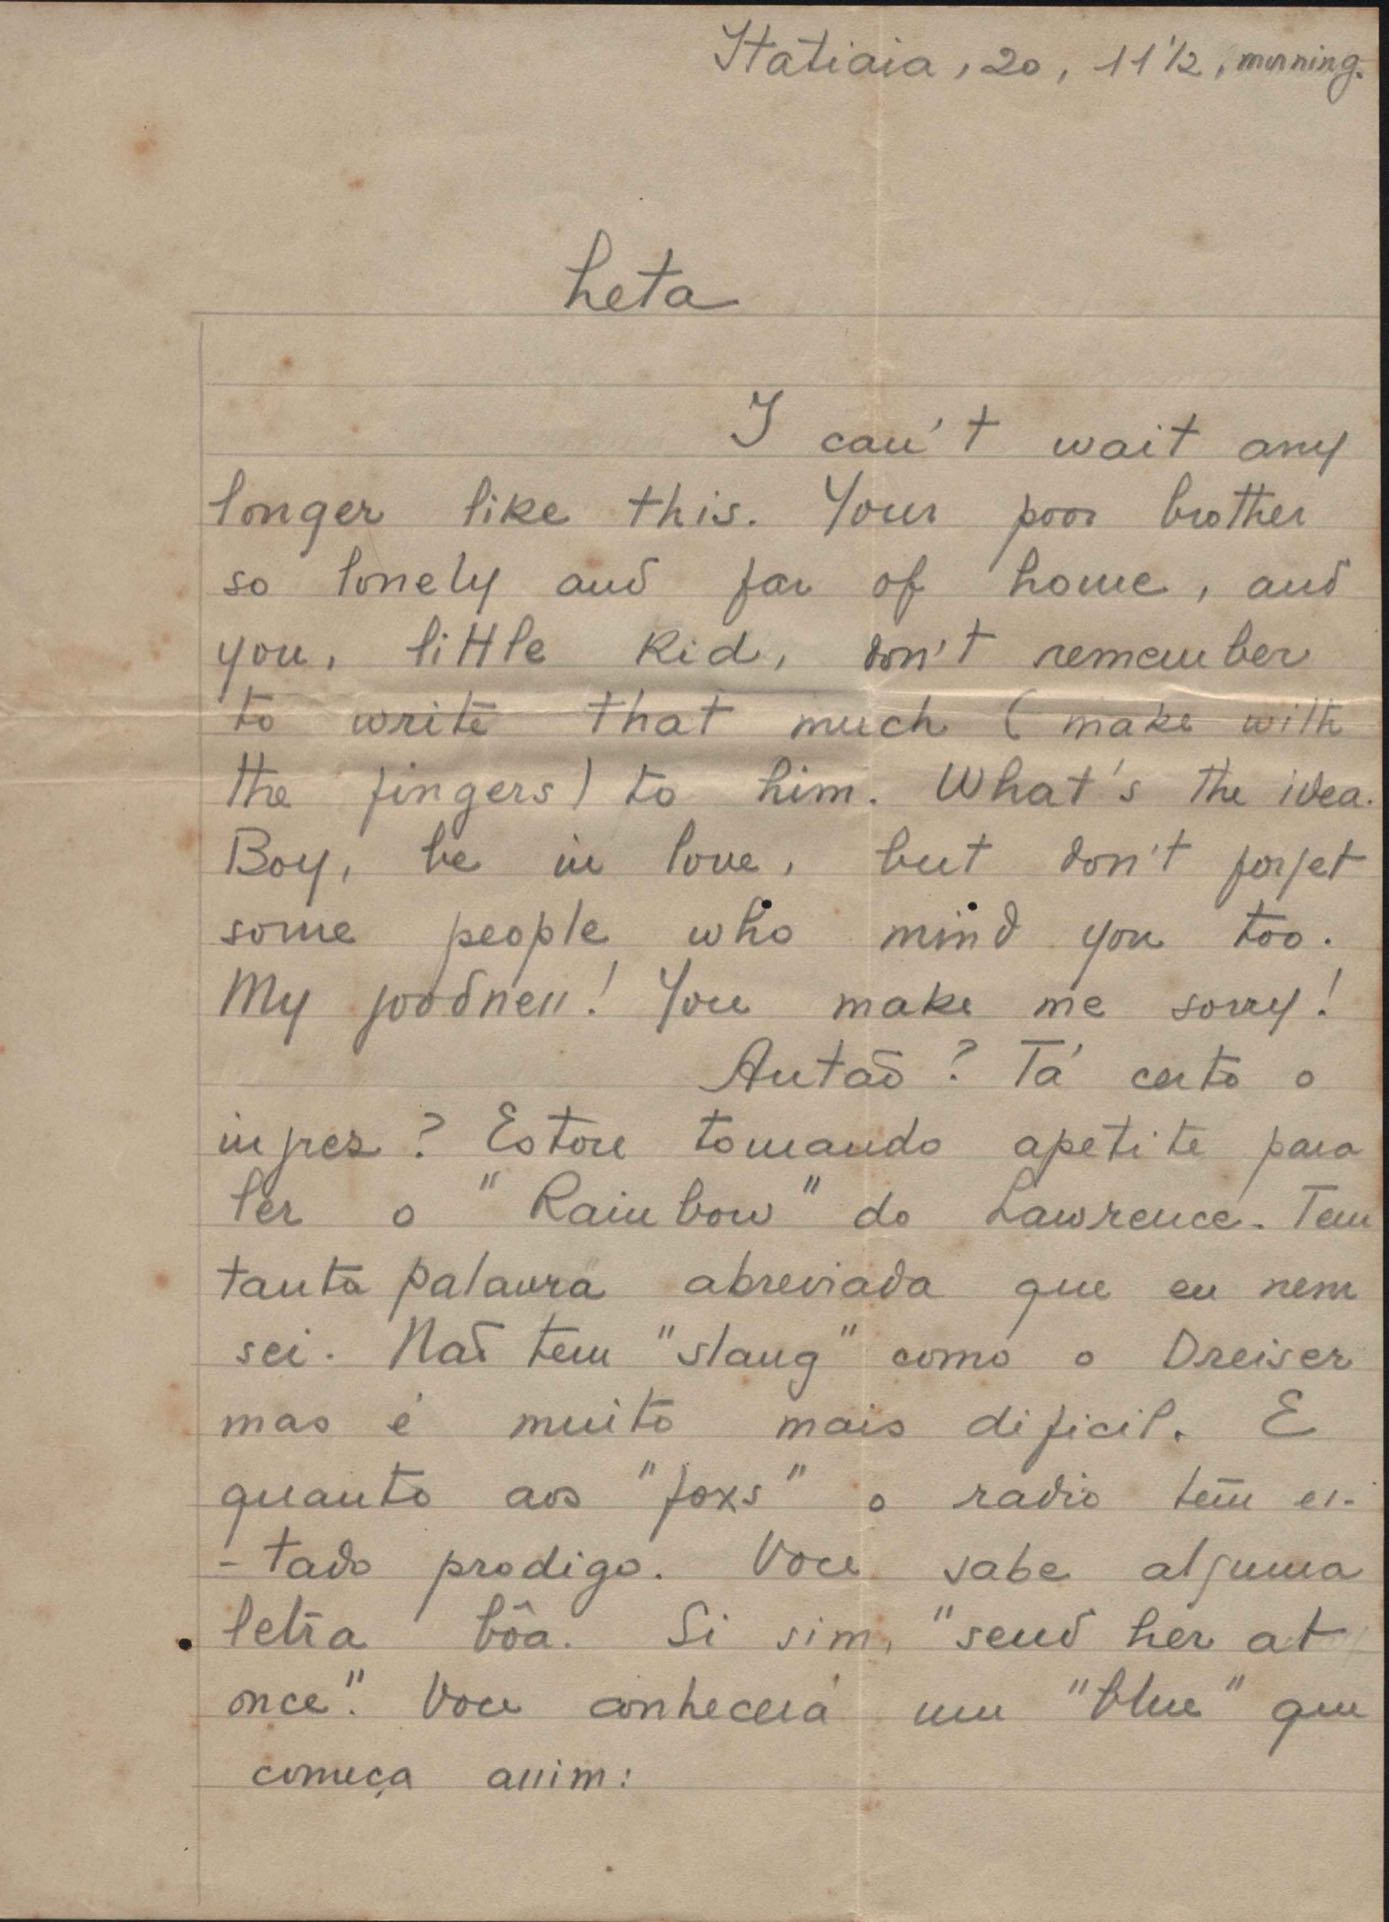 Itatiaia, 20, 11 1/2, morning.
Leta
I can't wait any
longer like this. Your poor brother
so lonely and far of home, and
you, little kid, don't remember
to write that much (make with
the fingers) to him. What's the idea.
Boy, be in love, but don't forget
some people who mind you too.
My goodness! You make me sorry!
Antão? Tá certo o
ingrez? Estou tomando apetite para
ler o "Rainbow" do Lawrence. Tem
tanta palavra abreviada que eu nem
sei. Não tem "slang" como o Dreiser
mas é muito mais dificil. E
quanto aos "foxs" o radio tem es-
-tado prodigo. Voce sabe alguma
letra bôa. Si sim, "send her at
once". Voce conhecerá um "blue" que
começa assim: